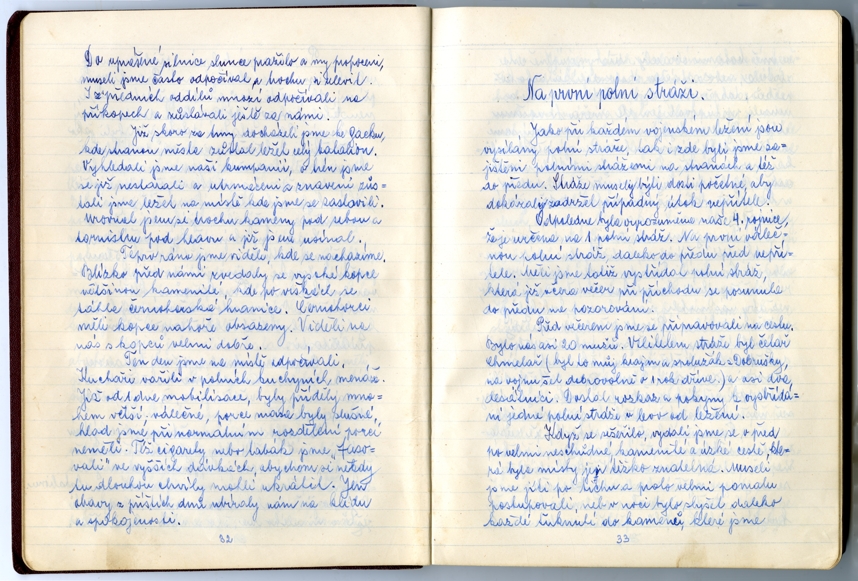 Do úpražné silnice slunce pražilo a my popocení,
museli jsme často odpočívat a trochu si ulevit.
I z předních oddílů mnozí odpočívali na
příkopech a zůstávali ještě za námi.
Již skoro za tmy docházeli jsme ke Gacku,
kde stranou města zůstal ležet celý batalion.
Vyhledali jsme naši kumpanii, o trén jsme
se již nestarali a utrmáceni a znaveni zůs=
tali jsme ležet na místě kde jsme se zastavili.
Urovnal jsem si trochu kameny pod sebou a
tornistru pod hlavu a již jsem usínal.
Teprv ráno jsme viděli, kde se nacházíme.
Blízko před námi zvedaly se vysoké kopce
většinou kamenité, kde po vrškách se
táhla černohorská hranice. Černohorci
měli kopce nahoře obsazeny. Viděli na
nás s kopců velmi dobře.
Ten den jsme na místě odpočívali.
Kuchaři vařili v polních kuchyních, menáže.
Již od 1 dne mobilisace, byly příděly mno=
hem větší - válečné, porce masa byly slušné,
hlad jsme při normálním rozdělení porcí
neměli. Též cigarety nebo tabák jsme „faso-
vali" ve vyšších dávkách, abychom si někdy
tu dlouhou chvíly mohli ukrátit. Jen
obavy z příštích dnů ubíraly nám na klidu
a spokojenosti.
32
Na první polní stráži.
Jako při každém vojenském ležení jsou
vysílány polní stráže, tak i zde byli jsme za=
jištěni polními strážemi na stranách a též
do předu. Stráže musely býti dosti početné, aby
dokázaly zadržet případný útok nepřítele.
Odpoledne byla vyrozuměna naše 4. rojnice,
že je určena na 1 polní stráž. Na první váleč=
nou polní stráž, daleko do předu před nepří=
tele. Měli jsme totiž vystřídat polní stráž,
která již včera večer při příchodu se posunula
do předu na pozorování.
Před večerem jsme se připravovali na cestu.
Bylo nás asi 20 mužů. Velitelem stráže byl četař
Chmelař (byl to můj krajan a spolužák z Dobrušky,
na vojnu šel dobrovolně o 1 rok dříve.) a asi dva
desátníci. Dostal rozkaz a pokyny k vystřídá=
ní jedné polní stráže v levo od ležení.
Když se ušeřilo, vydali jsme se v před
po velmi neschůdné, kamenité a úzké cestě,
byla místy jen těžko znatelná. Museli
jsme jíti po tichu a proto velmi pomalu
postupovali, neb v noci bylo slyšet daleko
každé ťuknutí do kamenů, které jsme
33